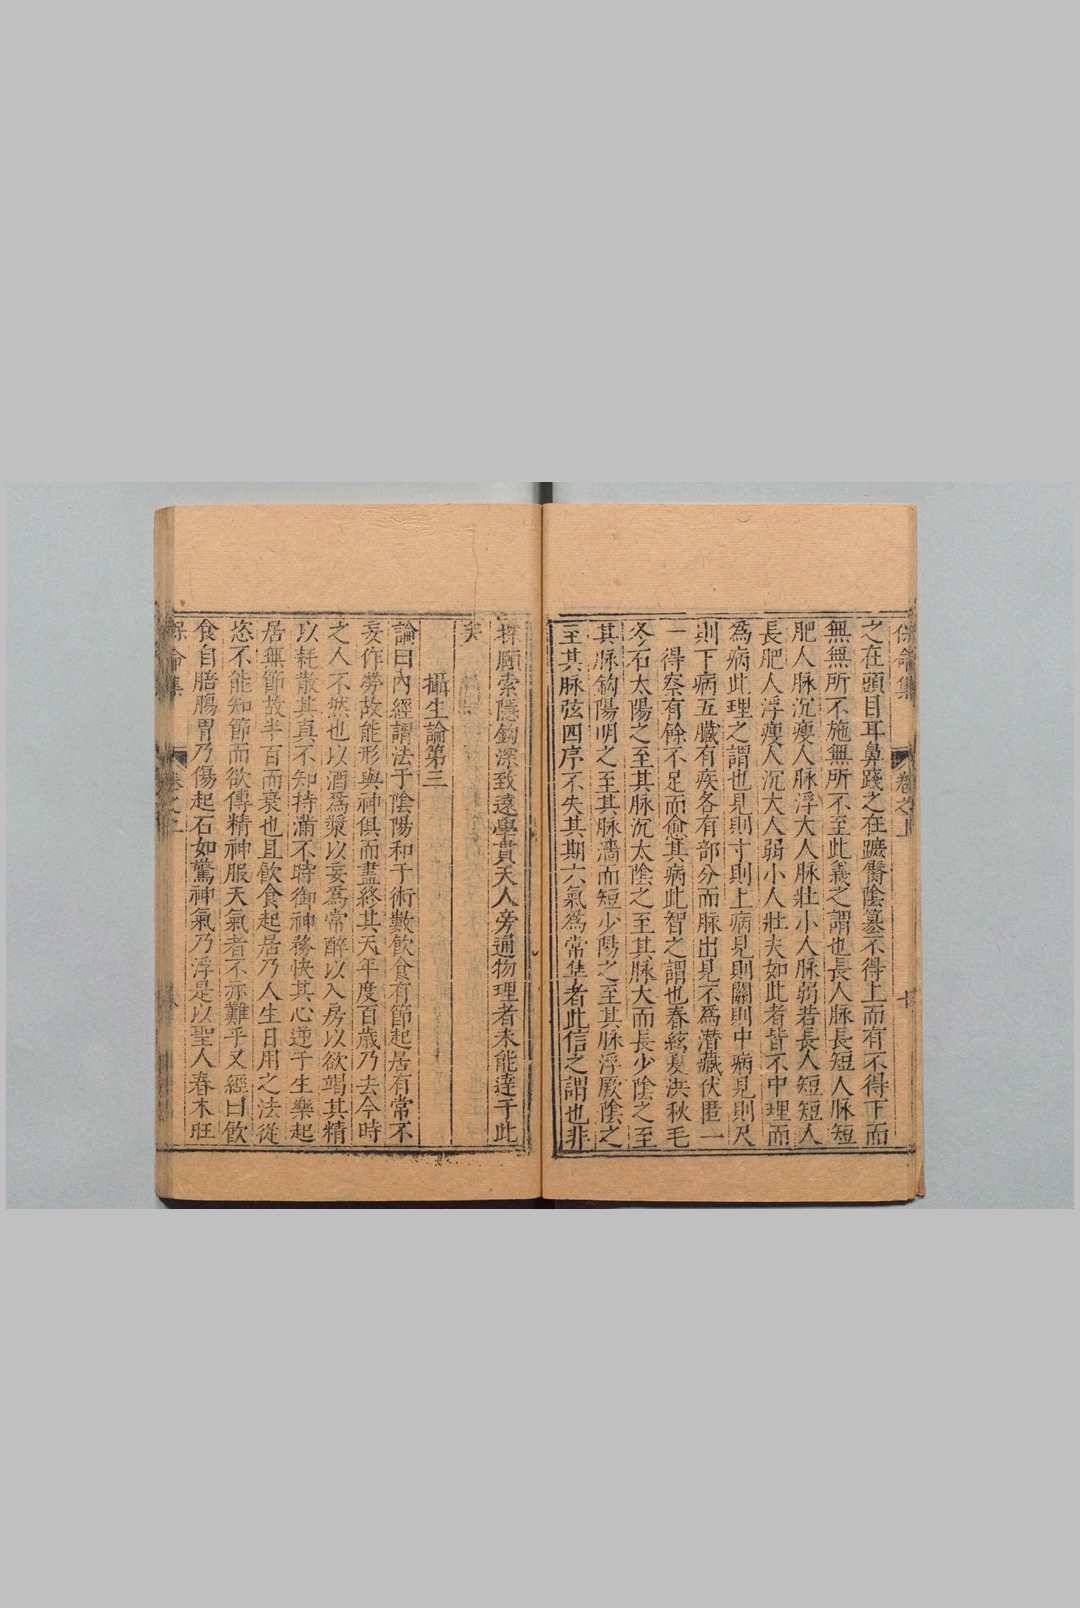 保命集
卷之上
之在頭目耳鼻踐之在蹠臀陰墓不得上而有不得下而
無無所不施無所不至此義之謂也長人脉長短人脉短
肥人脉沉瘦人脉浮大人脉壯小人脉弱若長人短短人
長肥人浮瘦人沉大人弱小人壯夫如此者皆不中理而
為病此理之謂也見則寸則上病見則關則中病見則尺
則下病五臓有疾各有部分而脉出見不為濳藏伏匿一
一得察有餘不足而愈其病此智之謂也春絃夏洪秋毛
冬石太陽之至其脉沉太陰之至其脉大而長少陰之至
其脉鈎陽明之至其脉濇而短少陽之至其脉浮厥陰之
至其脉弦四序不失其期六氣為常隼者此信之謂也非
探賾索隱鈎深致遠學貫天人旁通物理者未能達于此
矣
攝生論第三
論曰内經謂法于陰陽和于術數飲食有節起居有常不
妄作勞故能形與神俱而盡終其天年度百歳乃去今時
之人不然也以酒為漿以妄為常醉以入房以欲竭其精
以耗散其真不知持滿不時御神務快其心逆于生樂起
居無節故半百而衰也且飲食起居乃人生日用之法從
恣不能知節而欲傳精神服天氣者不亦難乎又經曰飲
食自陪腸胃乃傷起石如驚神氣乃浮是以聖人春木旺
保命集
卷之上
八